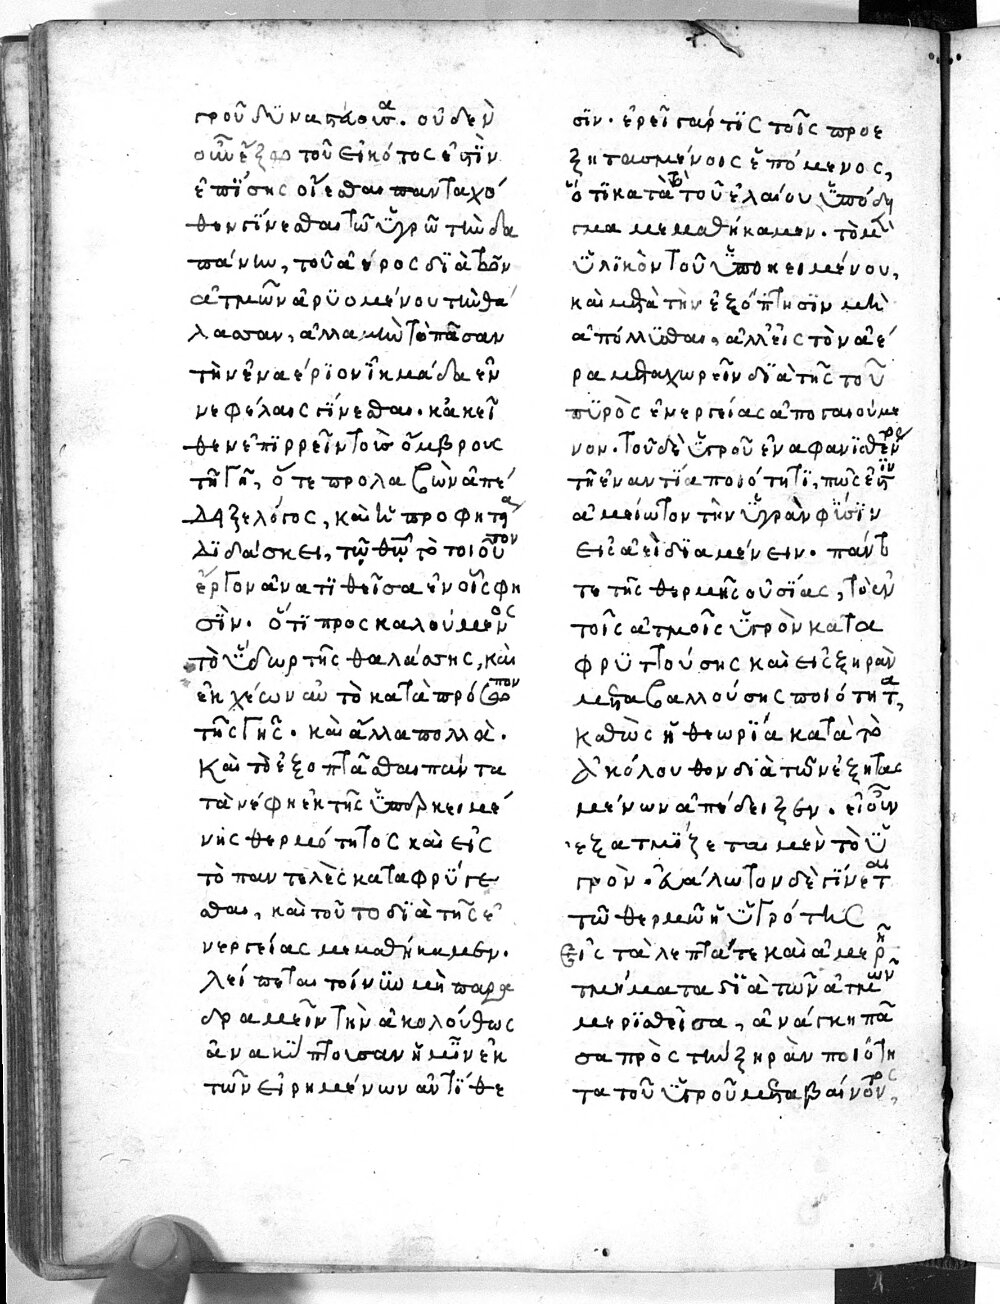 γροῦ δύναπάσισ(α). οὐδὲν
οὖν ἔξω τοῦ εἰκότος ἐστὶν
ἐπίσης οἴεσθαι πανταχό
θεν γίνεσθαι τῶ ὑγρῶ τὴν δα
πάνην, τοῦ ἀέρος διὰ τῶν
ἀτμῶν ἀρυομένου τὴν θά
λασσαν, ἀλλὰ μὴν τὸ πᾶσαν
τὴν ἐναέριον ἰκμάδα ἐν
νεφέλαις γίνεσθαι. κἀκεῖ
θεν ἐπιρρεῖν τοῖς ὄμβροις
τῆ γῆ, ὅ τε προλαβὼν ἀπέ
δειξε λόγος, καὶ ἡ προφητεία
διδάσκει, τῶ θεῶ τὸ τοιοῦτον
ἔργον ἀνατιθεῖσα ἐν οἷς φη
σὶν. ὅτι προσκαλούμενος
τὸ ὕδωρ τῆς θαλάσσης, καὶ
ἐκχέων αὐτὸ κατὰ πρόσωπον
τῆς γῆς. καὶ ἄλλα πολλὰ.
καὶ τὸ ἐξοπτᾶσθαι πάντα
τὰ νέφη ἐκ τῆς ὑπερκειμέ
νης θερμότητος καὶ εἰς
τὸ παντελὲς καταφρύγε
σθαι, καὶ τοῦτο διὰ τῆς ἐ
νεργείας μεμαθήκαμεν.
λείπεται τοίνυν μὴ παρα
δραμεῖν τὴν ἀκολούθως
ἀνακύπτουσαν ἡμῖν ἐκ
τῶν εἰρημένων ἀντίθε
σιν. ἐρεῖ γάρ τις τοῖς προε
ξητασμένοις ἑπόμενος,
ὅτι κατὰ τὸ τοῦ ἐλαίου ὑπόδει
γμα μεμαθήκαμεν. τὸ μὲν
ὑλικὸν τοῦ ὑποκειμένου,
καὶ μετὰ τὴν ἐξόπτησιν μὴ
ἀπόλλυσθαι, ἀλλ' εἰς τὸν ἀέ
ρα μεταχωρεῖν διὰ τῆς τοῦ
πυρὸς ἐνεργείας ἀπογαιούμε
νον. τοῦ δὲ ὑγροῦ ἐναφανισθέντος
τῆ ἐναντία ποιότητι, πῶς ἐστιν
ἀμείωτον τὴν ὑγρὰν φύσιν
εἰσαεὶ διαμένειν. πάντο
τε τῆς θερμῆς οὐσίας, τὸ ἐν
τοῖς ἀτμοῖς ὑγρὸν κατα
φρυττούσης καὶ εἰς ξηρὰν
μεταβαλλούσης ποιότητα,
καθὼς ἡ θεωρία κατὰ τὸ
ἀκόλουθον διὰ τῶν ἐξητασ
μένων ἀπέδειξεν. εἰ οὖν
ἐξατμίζεται μὲν τὸ ὑ
γρὸν. ἁλωτὸν δὲ γίνεται
τῶ θερμῶ ἡ ὑγρότης
εἰς τὰ λεπτά τε καὶ ἀμερῆ
τμήματα διὰ τῶν ἀτμῶν
μερισθεῖσα, ἀνάγκη πᾶ
σα πρὸς τὴν ξηρὰν ποιότη
τα τοῦ ὑγροῦ μεταβαίνοντος,